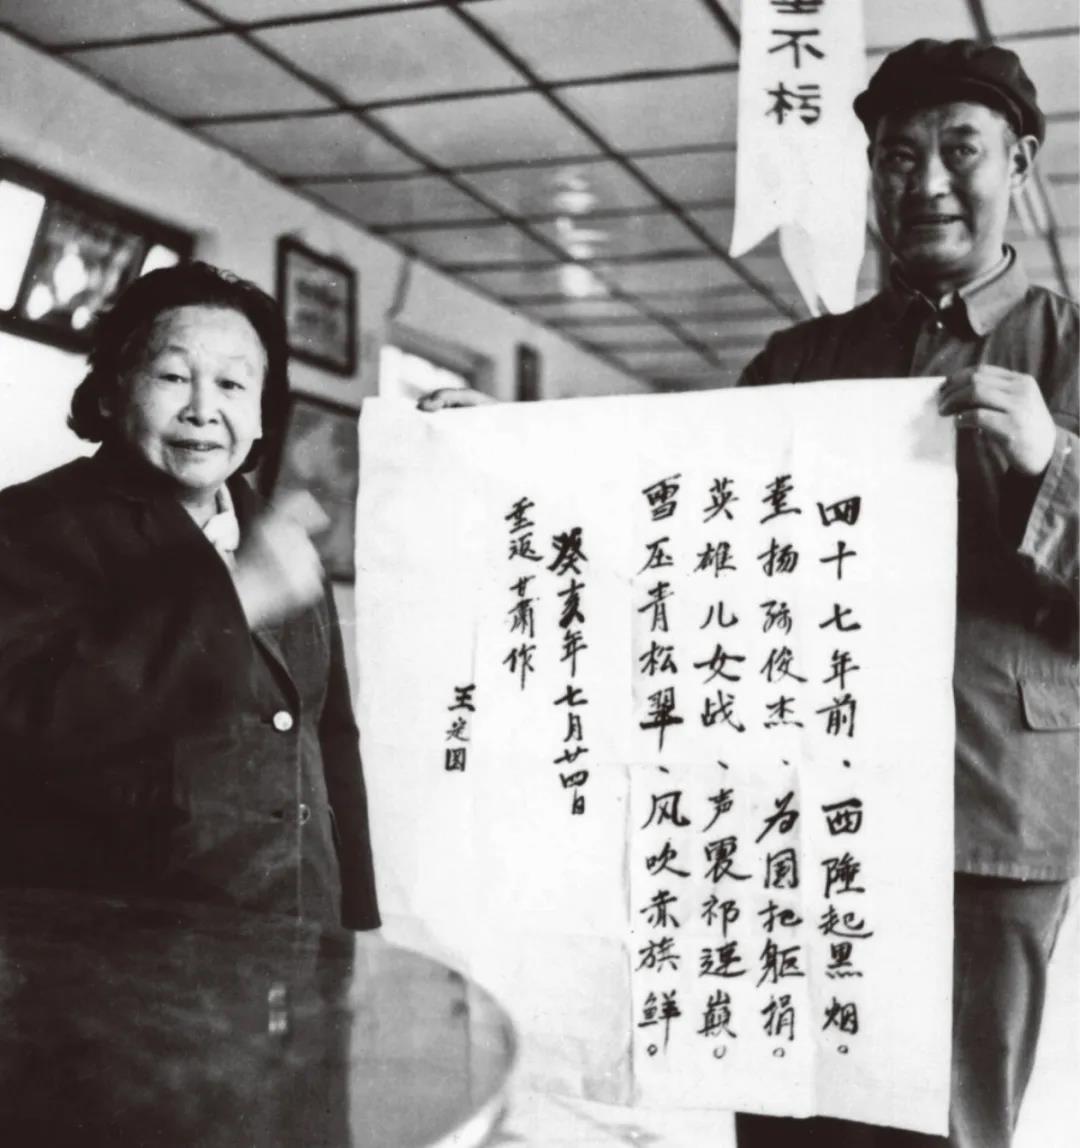 垂不朽
四十七年前、西陲起黑烟。
董扬孙俊杰、为国把躯捐。
英雄儿女战、声震祁连巅。
雪压青松翠、风吹赤旗鲜。
癸亥年七月廿四日
重返甘肃作
王定国